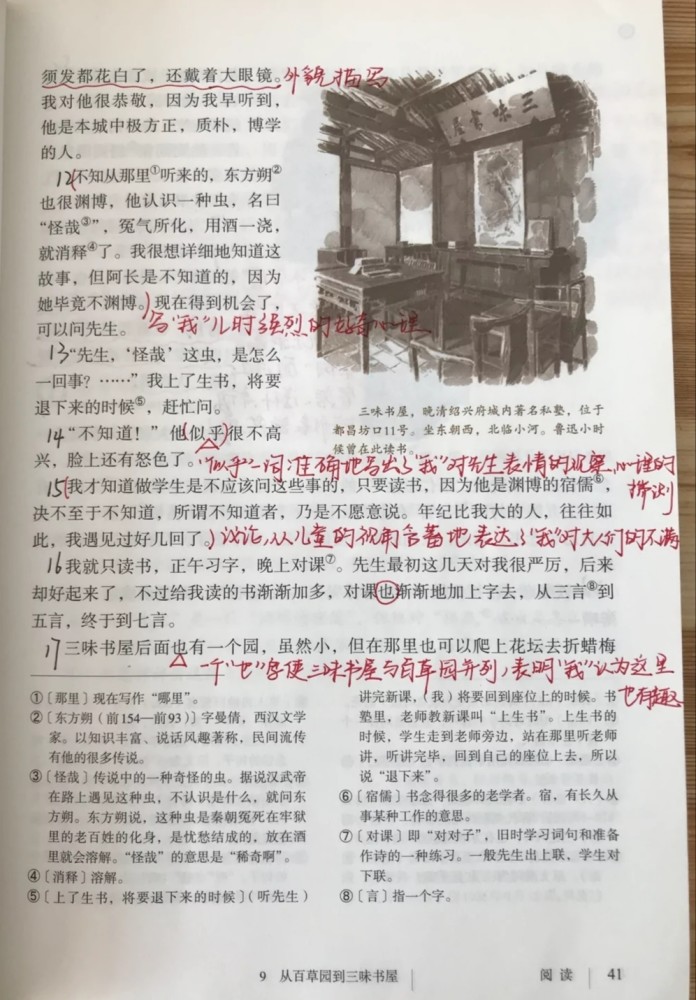 须发都花白了，还戴着大眼镜。外貌描写
我对他很恭敬，因为我早听到，
他是本城中极方正，质朴，博学
的人。
12(不知从那里①听来的，东方朔②
也很渊博，他认识一种虫，名曰
“怪哉③”，冤气所化，用酒一浇，
就消释④了。我很想详细地知道这
故事，但阿长是不知道的，因为
她毕竟不渊博。)现在得到机会了，
可以问先生。写“我”儿时强烈的好奇心理
13“先生，‘怪哉’这虫，是怎么
一回事？……”我上了生书，将要
退下来的时候⑤，赶忙问。
三味书屋
三味书屋，晚清绍兴府城内著名私塾，位于
都昌坊口11号。坐东朝西，北临小河。鲁迅小时
候曾在此读书。
14“不知道！”他(似乎)很不高
兴，脸上还有怒色了。“似乎”一词准确地写出了“我”对先生表情的观察，心理的
揣测
15(我才知道做学生是不应该问这些事的，只要读书，因为他是渊博的宿儒⑥，
决不至于不知道，所谓不知道者，乃是不愿意说。年纪比我大的人，往往如
此，我遇见过好几回了。)议论，从儿童的视角含蓄地表达了“我”对大人们的不满
16我就只读书，正午习字，晚上对课⑦。先生最初这几天对我很严厉，后来
却好起来了，不过给我读的书渐渐加多，对课也渐渐地加上字去，从三言⑧到
五言，终于到七言。
17三味书屋后面也有一个园，虽然小，但在那里也可以爬上花坛去折蜡梅
一个“也”字使三味书屋与百草园并列，表明“我”认为这里
也有趣
①〔那里〕现在写作“哪里”。
②〔东方朔（前154—前93）〕字曼倩，西汉文学
家。以知识丰富、说话风趣著称，民间流传
有他的很多传说。
③〔怪哉〕传说中的一种奇怪的虫。据说汉武帝
在路上遇见这种虫，不认识是什么，就问东
方朔。东方朔说，这种虫是秦朝冤死在牢狱
里的老百姓的化身，是忧愁结成的，放在酒
里就会溶解。“怪哉”的意思是“稀奇啊”。
④〔消释〕溶解。
⑤〔上了生书，将要退下来的时候〕（听先生）
讲完新课，（我）将要回到座位上的时候。书
塾里，老师教新课叫“上生书”。上生书的
时候，学生走到老师旁边，站在那里听老师
讲，听讲完毕，回到自己的座位上去，所以
说“退下来”。
⑥〔宿儒〕书念得很多的老学者。宿，有长久从
事某种工作的意思。
⑦〔对课〕即“对对子”，旧时学习词句和准备
作诗的一种练习。一般先生出上联，学生对
下联。
⑧〔言〕指一个字。
9 从百草园到三味书屋 阅读 41